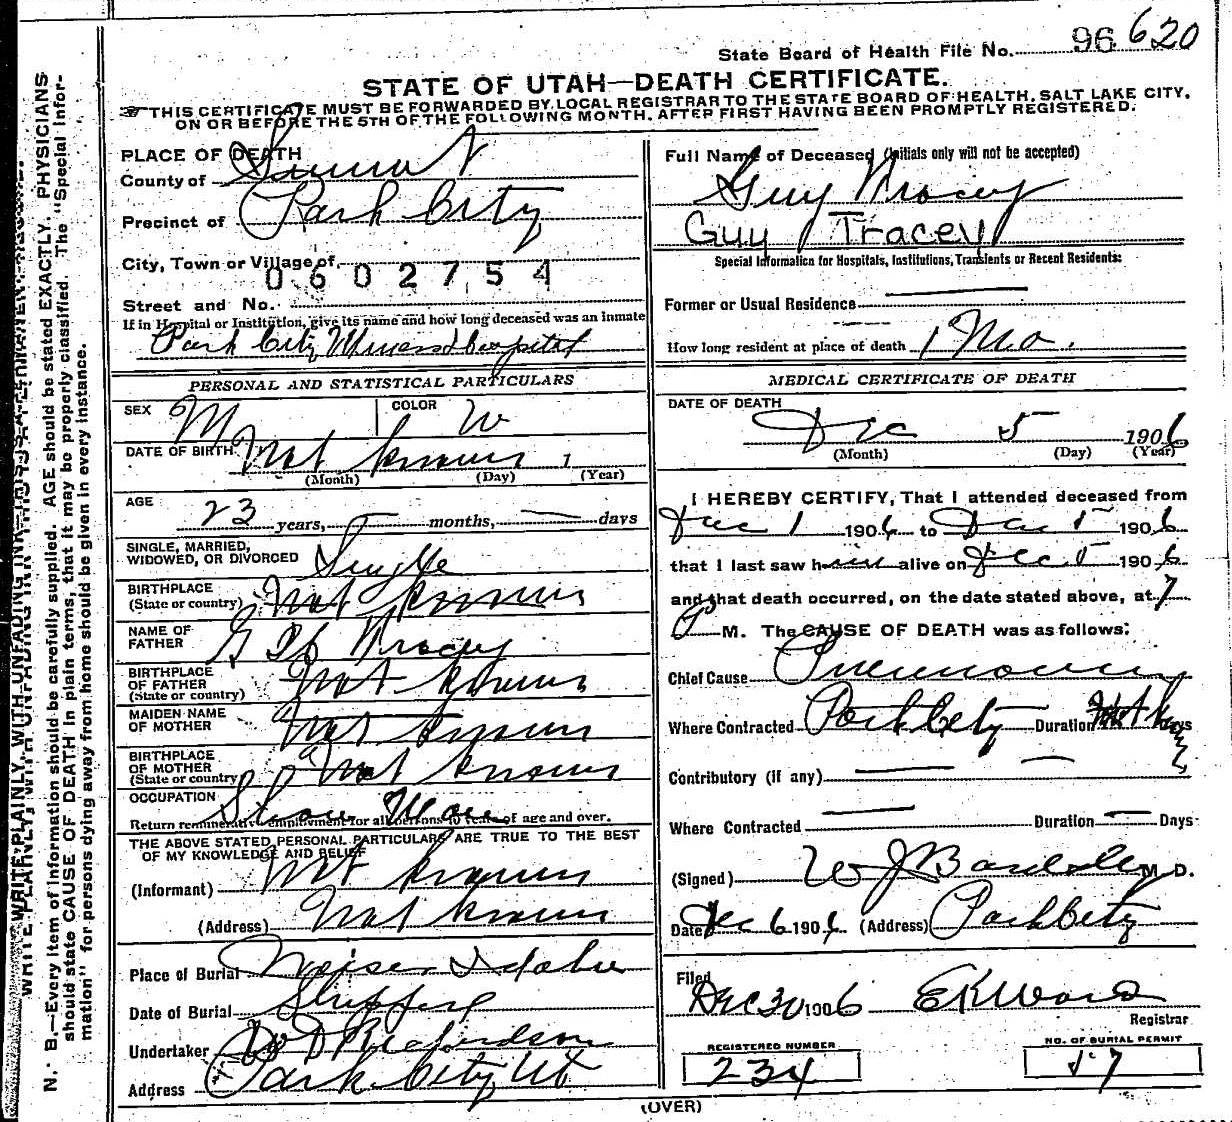 State Board of Health File No. 96 620
STATE OF UTAH—DEATH CERTIFICATE.
THIS CERTIFICATE MUST BE FORWARDED BY LOCAL REGISTRAR TO THE STATE BOARD OF HEALTH, SALT LAKE CITY,
ON OR BEFORE THE 5TH OF THE FOLLOWING MONTH, AFTER FIRST HAVING BEEN PROMPTLY REGISTERED.
PLACE OF DEATH
County of Summit
Precinct of Park City
City, Town or Village of
0602754
Street and No.
If in Hospital or Institution, give its name and how long deceased was an inmate
Park City Miners Hospital
PERSONAL AND STATISTICAL PARTICULARS
SEX M COLOR W
DATE OF BIRTH Not known 1
(Month) (Day) (Year)
AGE
23 years, — months, — days
SINGLE, MARRIED,
WIDOWED, OR DIVORCED Single
BIRTHPLACE
(State or country) Not known
NAME OF
FATHER Tracey
BIRTHPLACE
OF FATHER
(State or country) Not known
MAIDEN NAME
OF MOTHER Not known
BIRTHPLACE
OF MOTHER
(State or country) Not known
OCCUPATION
Return remunerative employment for all persons 10 years of age and over.
THE ABOVE STATED PERSONAL PARTICULARS ARE TRUE TO THE BEST
OF MY KNOWLEDGE AND BELIEF
(Informant) Not known
(Address) Not known
Place of Burial Weiser Idaho
Date of Burial Shipped
Undertaker Richardson
Address Park City Ut
Full Name of Deceased (Initials only will not be accepted)
Guy Tracey
Guy Tracey
Special Information for Hospitals, Institutions, Transients or Recent Residents:
Former or Usual Residence —
How long resident at place of death 1 Mo.
MEDICAL CERTIFICATE OF DEATH
DATE OF DEATH
Dec 5 1906
(Month) (Day) (Year)
I HEREBY CERTIFY, That I attended deceased from
Dec 1 1906 to Dec 5 1906
that I last saw him alive on Dec 5 1906
and that death occurred, on the date stated above, at 7
P M. The CAUSE OF DEATH was as follows:
Chief Cause Pneumonia
Where Contracted Park City Duration Days
Contributory (if any) — —
Where Contracted — Duration — Days
(Signed) W J Bardsley M. D.
Date Dec 6 1906 (Address) Park City
Filed
Dec 30 1906 E K Ward
Registrar
REGISTERED NUMBER
234
NO. OF BURIAL PERMIT
57
(OVER)
WRITE PLAINLY, WITH UNFADING INK
N. B.—Every item of information should be carefully supplied. AGE should be stated EXACTLY. PHYSICIANS
should state CAUSE OF DEATH in plain terms, that it may be properly classified. The "Special Infor-
mation" for persons dying away from home should be given in every instance.